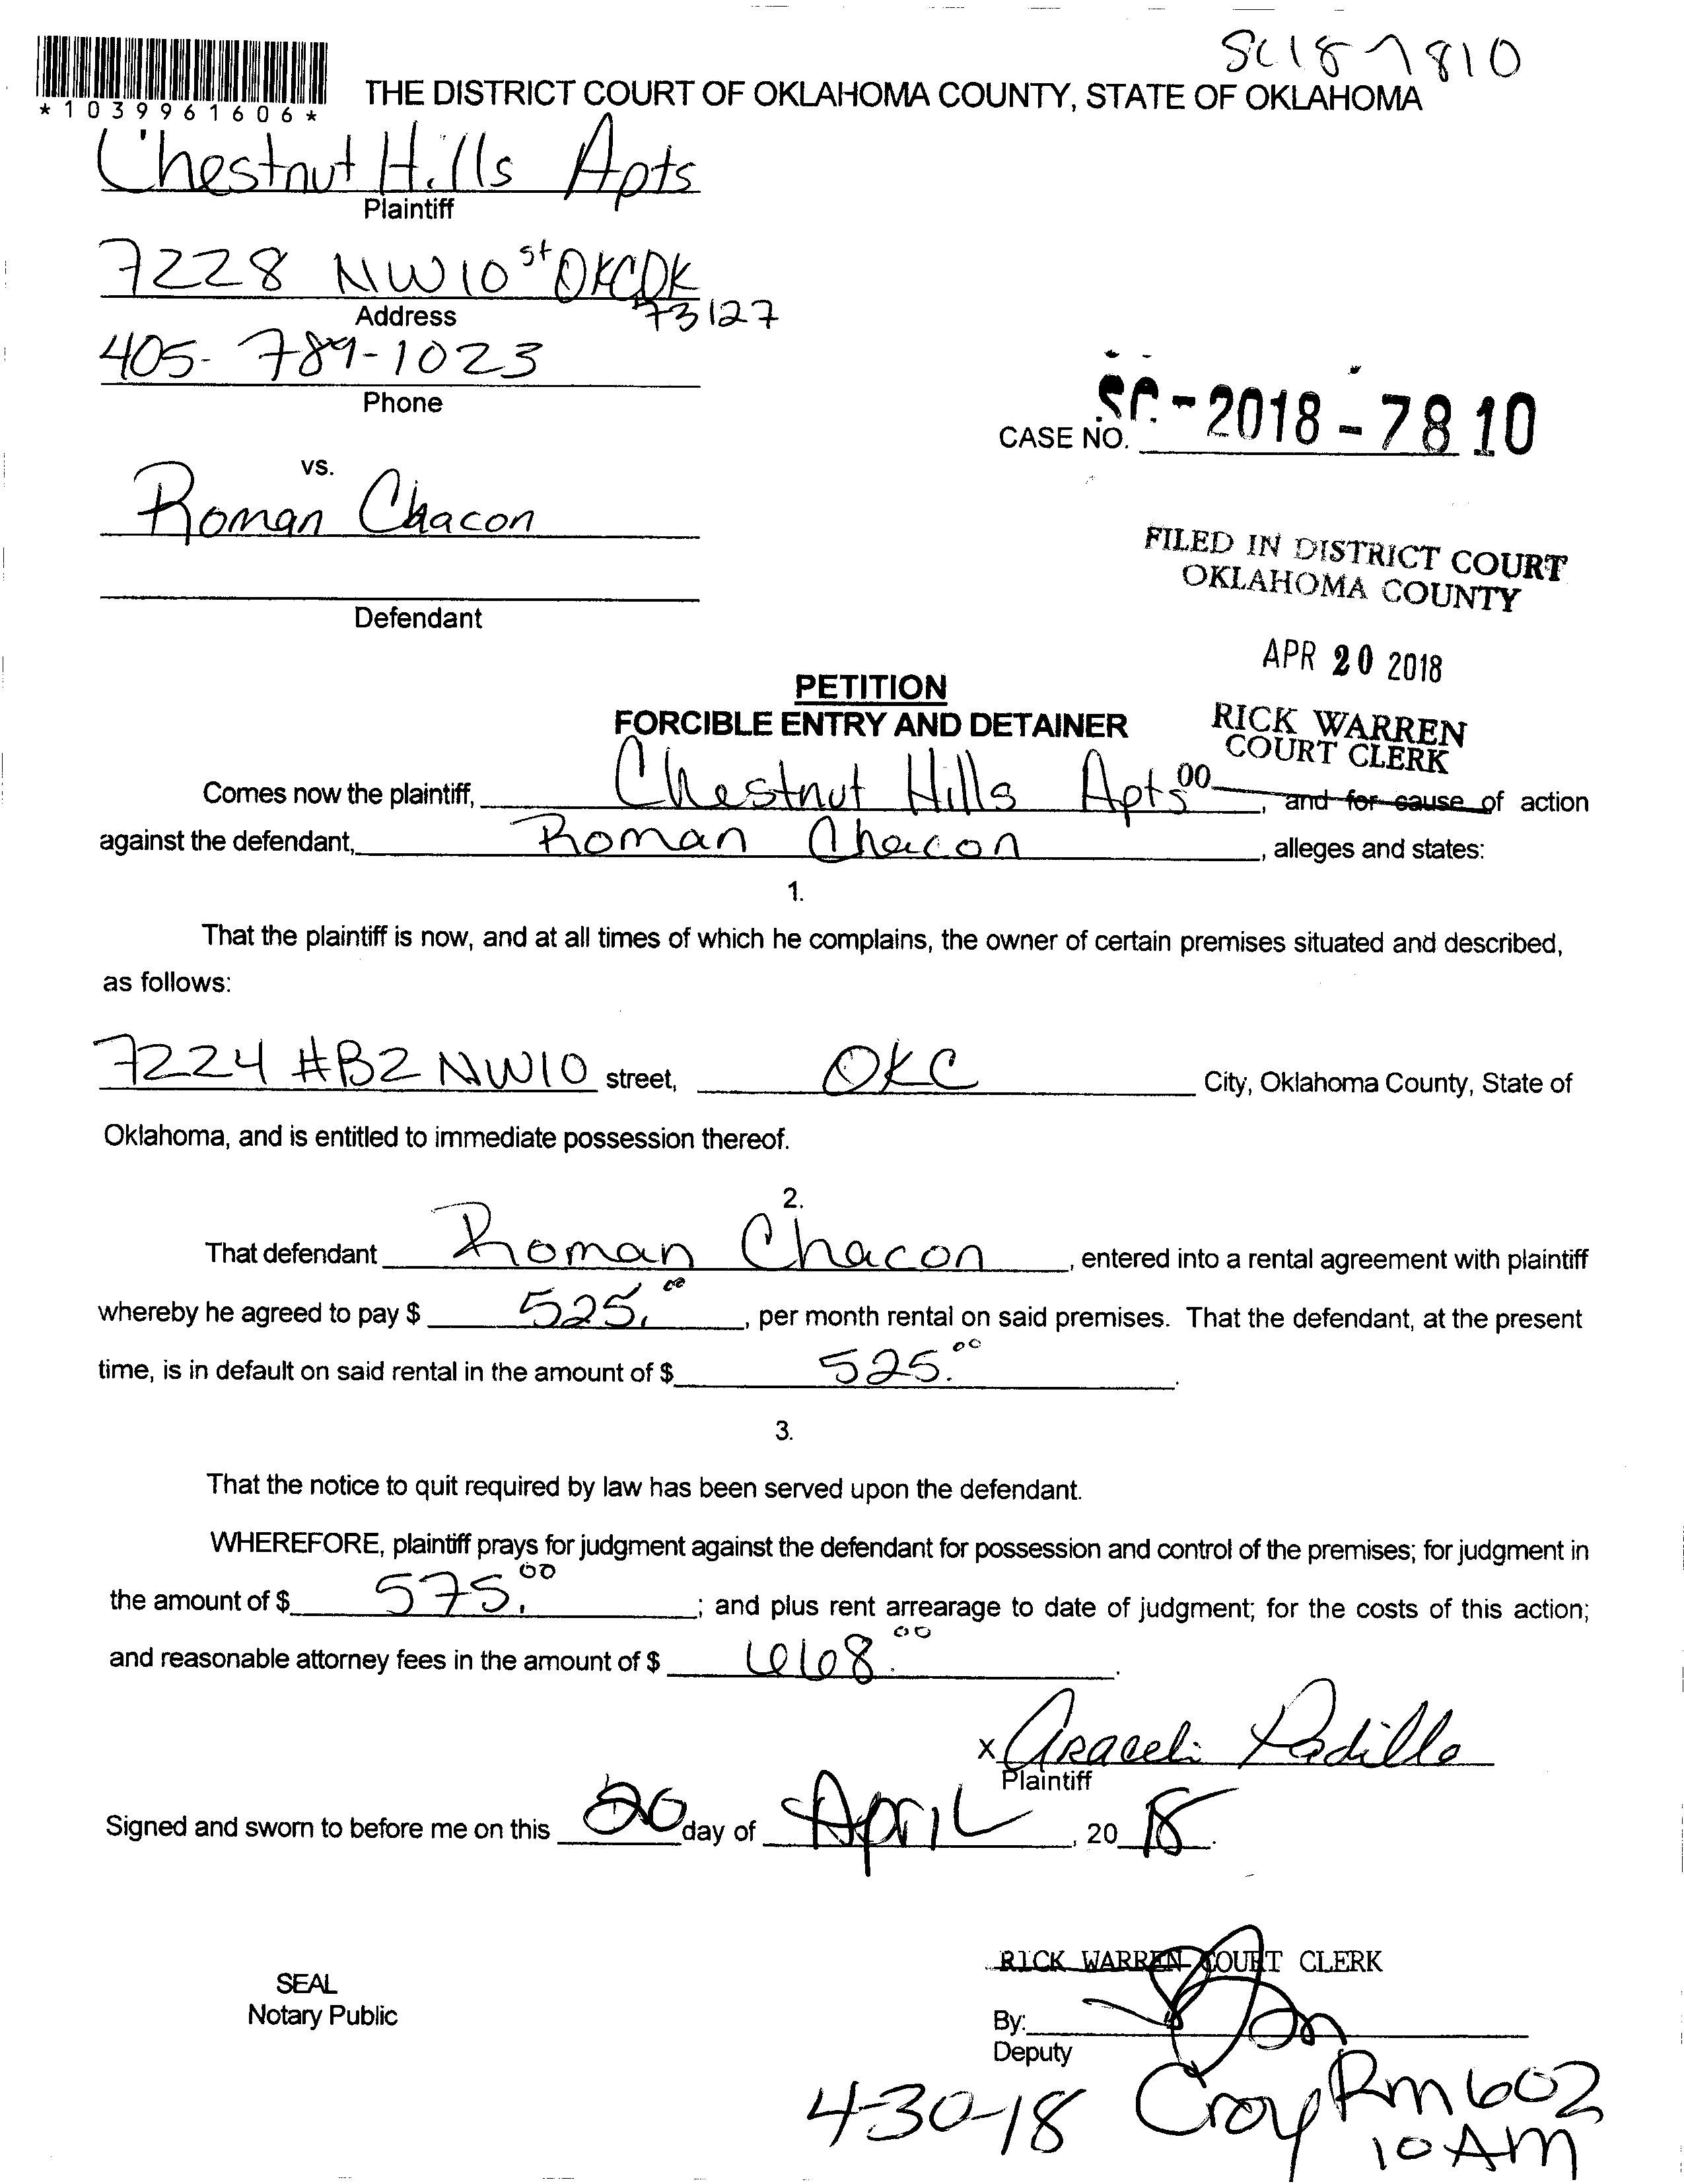 SC18-7810
*1039961606*
THE DISTRICT COURT OF OKLAHOMA COUNTY, STATE OF OKLAHOMA
Chestnut Hills Apts
Plaintiff
7228 NW 10 st OKC OK
73127
Address
405-789-1023
Phone
CASE NO. SC-2018-7810
vs.
Roman Chacon
Defendant
FILED IN DISTRICT COURT
OKLAHOMA COUNTY
APR 20 2018
RICK WARREN
COURT CLERK
PETITION
FORCIBLE ENTRY AND DETAINER
Comes now the plaintiff, Chestnut Hills Apts 00, and for cause of action
against the defendant, Roman Chacon, alleges and states:
1.
That the plaintiff is now, and at all times of which he complains, the owner of certain premises situated and described,
as follows:
7224 #B2 NW10 street, OKC City, Oklahoma County, State of
Oklahoma, and is entitled to immediate possession thereof.
2.
That defendant Roman Chacon, entered into a rental agreement with plaintiff
whereby he agreed to pay $ 525.00, per month rental on said premises. That the defendant, at the present
time, is in default on said rental in the amount of $ 525.00.
3.
That the notice to quit required by law has been served upon the defendant.
WHEREFORE, plaintiff prays for judgment against the defendant for possession and control of the premises; for judgment in
the amount of $ 575.00; and plus rent arrearage to date of judgment; for the costs of this action;
and reasonable attorney fees in the amount of $ 668.00.
x Araceli Padilla
Plaintiff
Signed and sworn to before me on this 20 day of April, 2018.
RICK WARREN COURT CLERK
SEAL
Notary Public
By:
Deputy
4-30-18 Croy Rm 602
10 AM